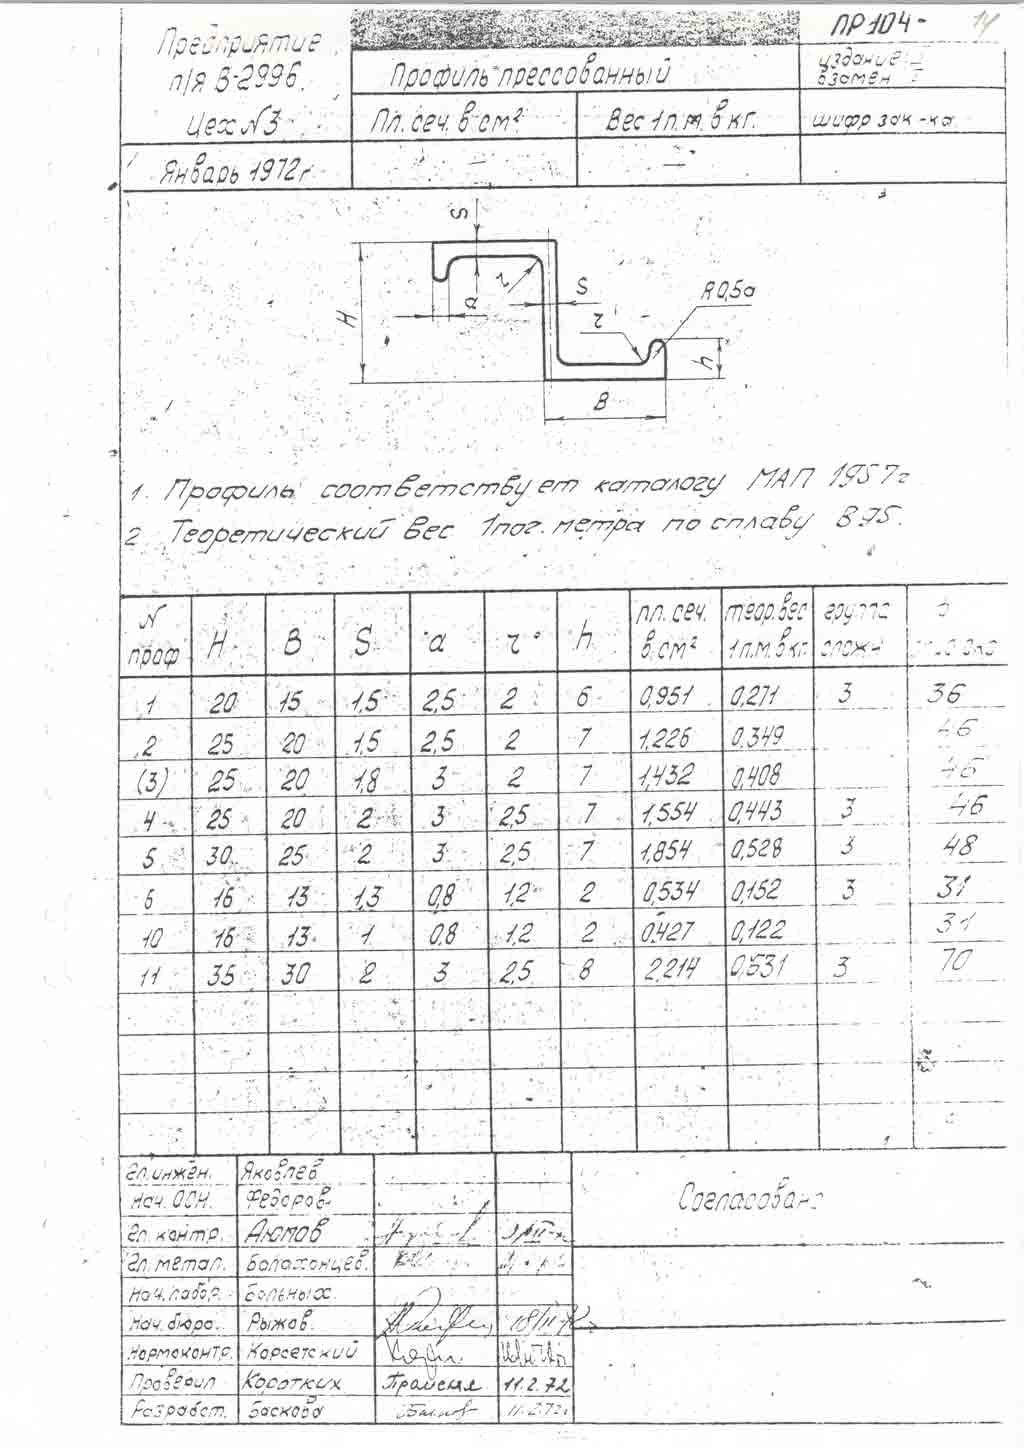 Предприятие
п/я В-2996.
Цех №3
Январь 1972г
ПР104- 14
Профиль прессованный
издание —
взамен —
Пл. сеч. в см² Вес 1п.м. в кг. шифр зак-ка
— —
S
H
a
r
S
R0,5a
r
h
B
1. Профиль соответствует каталогу МАП 1957г
2 Теоретический вес 1пог. метра по сплаву В95.
N проф H B S a r h пл. сеч. в см² теор.вес 1п.м. в кг группа сложн
1 20 15 1,5 2,5 2 6 0,951 0,271 3 36
2 25 20 1,5 2,5 2 7 1,226 0,349 46
(3) 25 20 1,8 3 2 7 1,432 0,408 46
4 25 20 2 3 2,5 7 1,554 0,443 3 46
5 30 25 2 3 2,5 7 1,854 0,528 3 48
6 16 13 1,3 0,8 1,2 2 0,534 0,152 3 31
10 16 13 1 0,8 1,2 2 0,427 0,122 31
11 35 30 2 3 2,5 8 2,214 0,531 3 70
Гл.инжен. Яковлев
Нач. ОСН. Федоров
Гл. контр. Аюпов
Гл. метал. Балахонцев.
Нач. лабор. Больных
Нач. бюро. Рыжов. 18/II-72
Нормоконтр. Корсетский
Проверил Коротких 11.2.72
Разработ. Баскова 11.2.72г
Согласовано